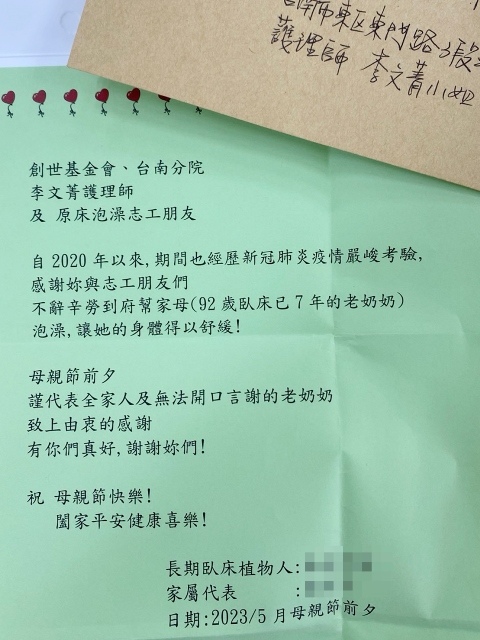 台南市東區東門路3段
護理師 李文菁小姐
創世基金會、台南分院
李文菁護理師
及 原床泡澡志工朋友
自 2020 年以來,期間也經歷新冠肺炎疫情嚴峻考驗,
感謝妳與志工朋友們
不辭辛勞到府幫家母(92 歲臥床已 7 年的老奶奶)
泡澡,讓她的身體得以舒緩!
母親節前夕
謹代表全家人及無法開口言謝的老奶奶
致上由衷的感謝
有你們真好,謝謝妳們!
祝 母親節快樂!
闔家平安健康喜樂!
長期臥床植物人:
家屬代表 :
日期:2023/5 月母親節前夕